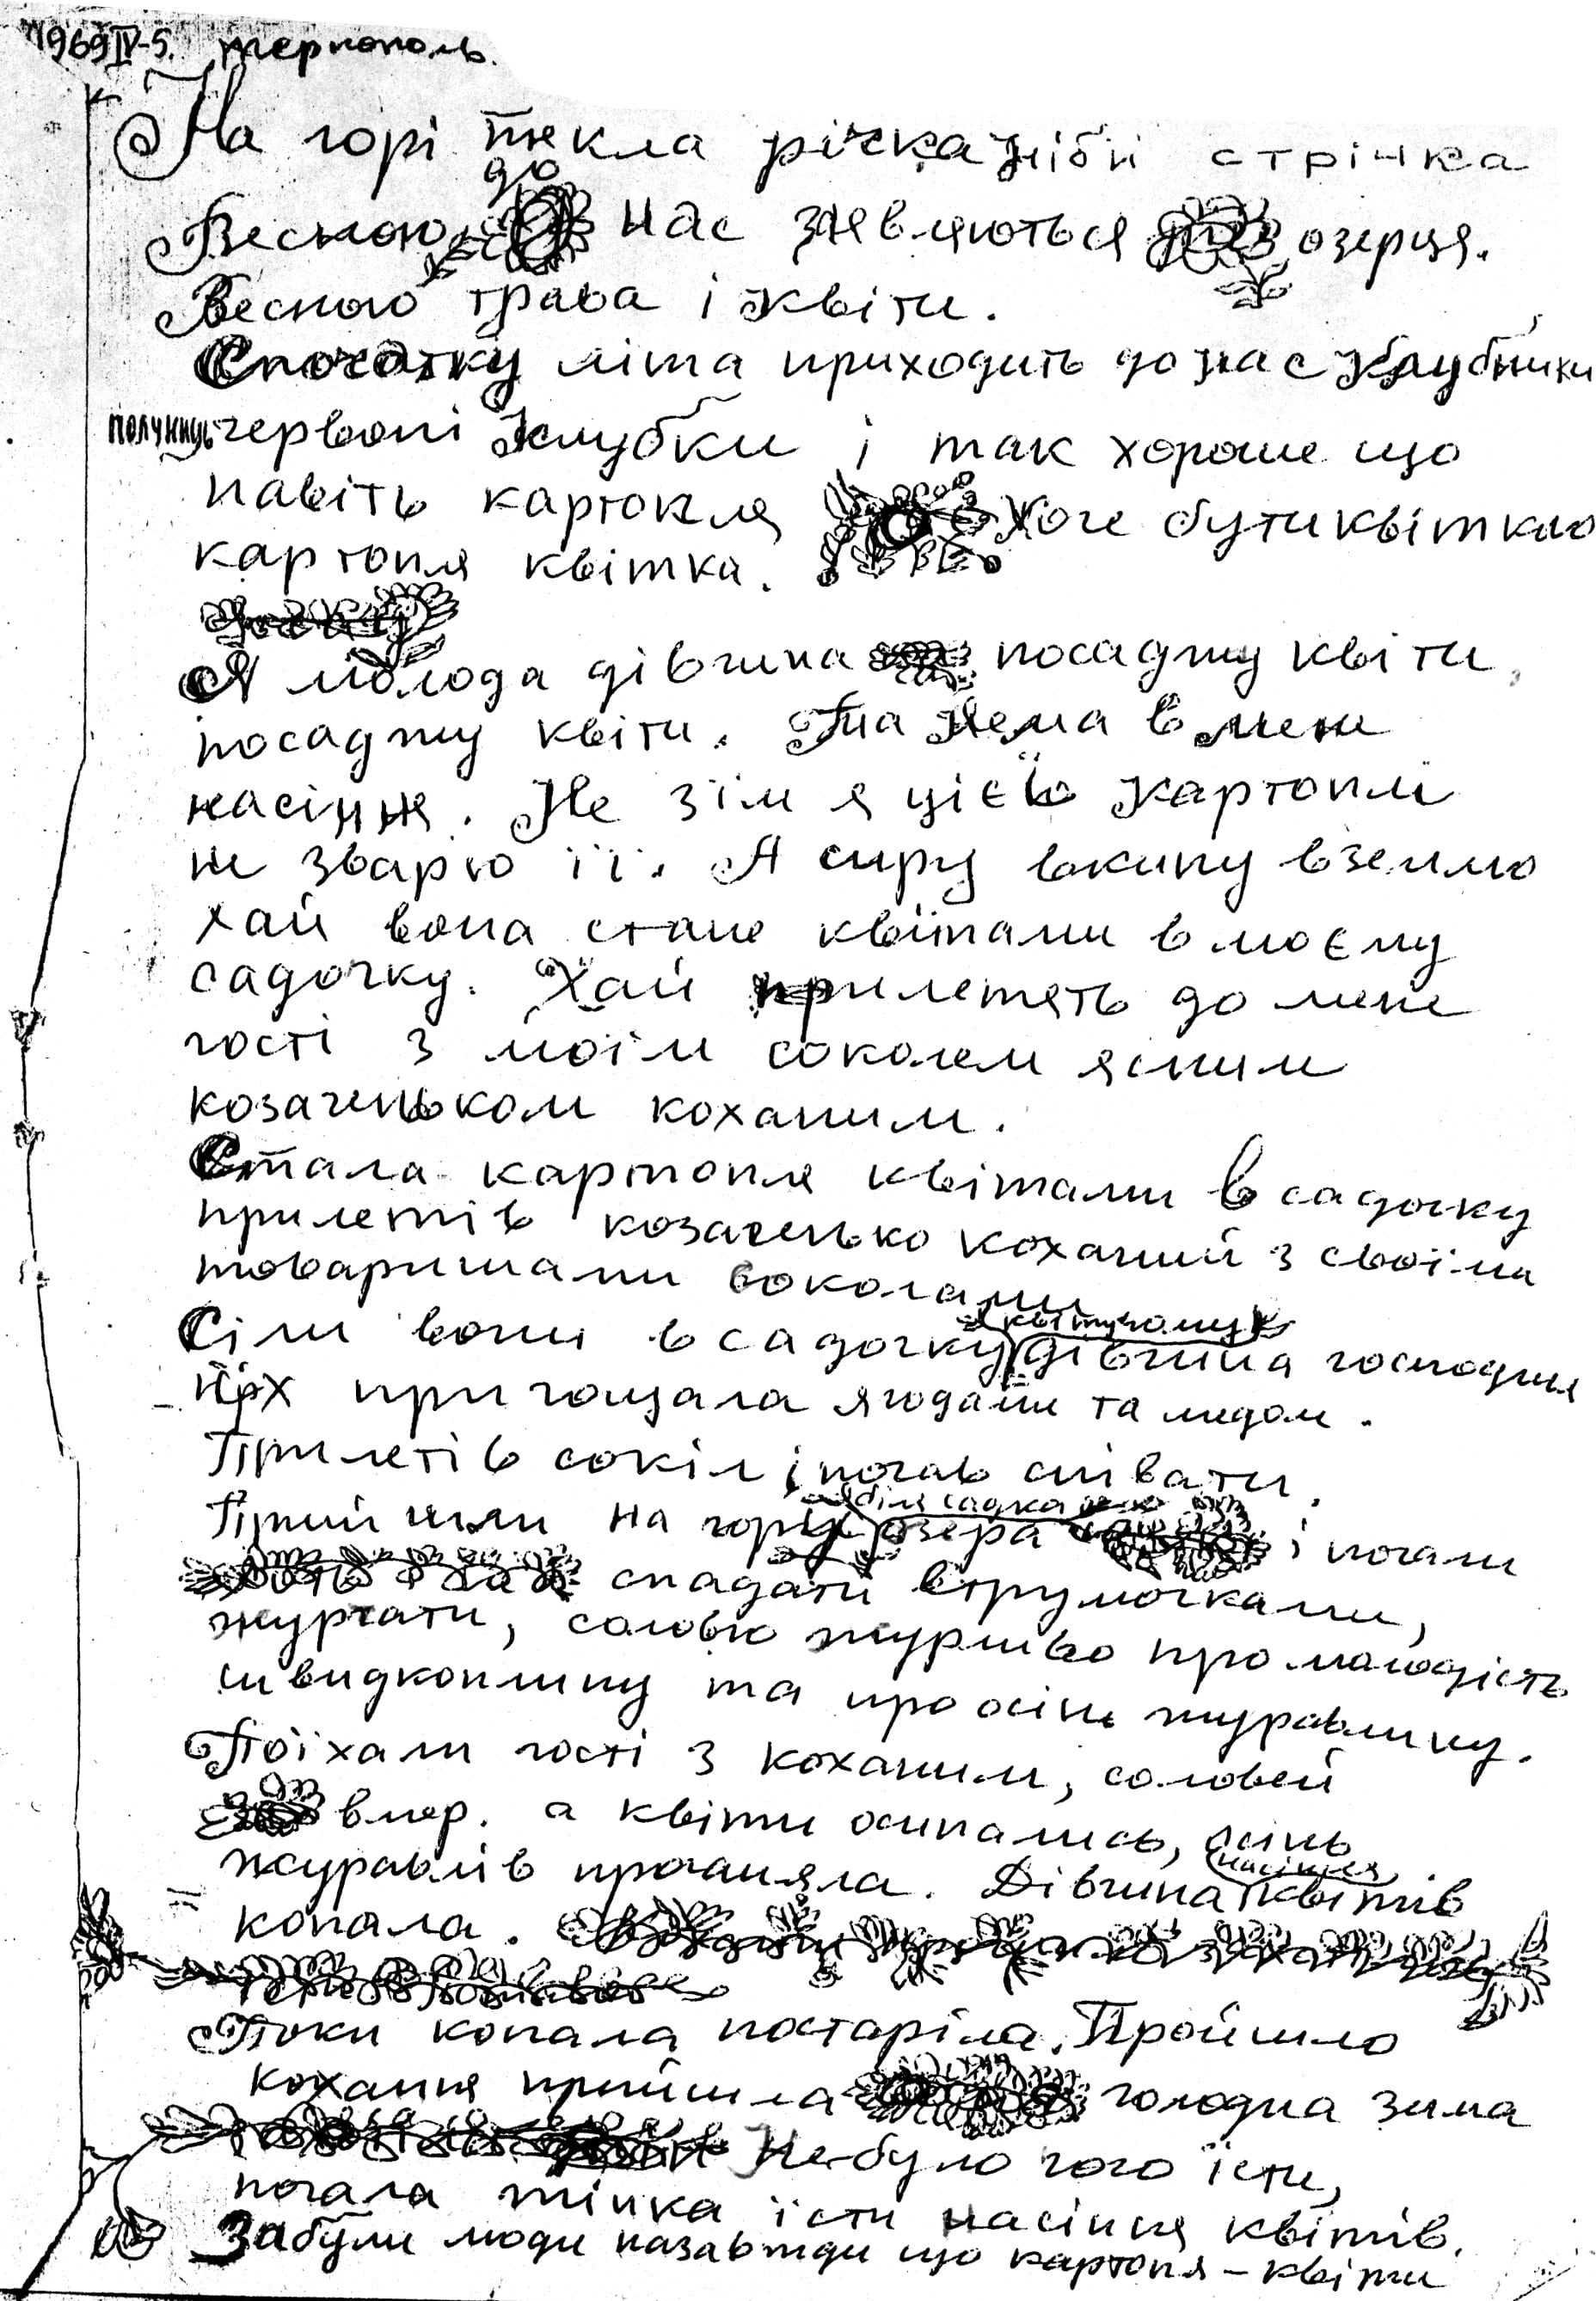 1969 IV-5. тернополь.
На горі текла річка ніби стрічка
до
Весною нас зявляються озерця.
Весною трава і квіти.
Спочатку літа приходить до нас клубники
полуниць червоні клубки і так хороше що
навіть картопля хоче бути квіткою
картопля квітка.
Я молода дівчина посаджу квіти,
посаджу квіти. Та нема в мене
насіння. Не зїм я цієї картоплі
не зварю її. А сиру вкину в землю
хай вона стане квітами в моєму
садочку. Хай прилетять до мене
гості з моїм соколем ясним
козаченьком коханим.
Стала картопля квітами в садочку
прилетів козаченько коханий з своїми
товаришами соколами
квітучому
Сіли вони в садочку дівчина господиня
їх пригощала ягодами та медом.
Прилетів сокіл і почав співати.
біля садка
Прийшли на гору озера і почали
спадати струмочками,
журчати, соловю журливо про молодість
швидкоплину та про осінь журавлину.
Поїхали гості з коханим, соловей
вмер. а квіти осипались, осінь
журавлів прогоняла. Дівчина квітів
насіння
копала.
Поки копала постаріла. Пройшло
кохання прийшла голодна зима
Не було чого їсти,
почала жінка їсти насіння квітів.
Забули люди назавжди що картопля – квіти